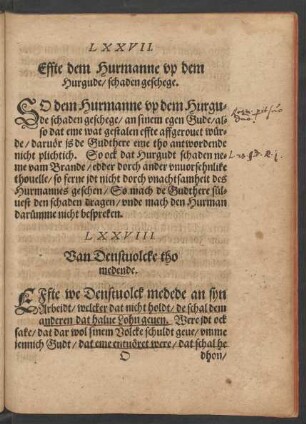 LXXVII.
Effte dem Hurmanne vp dem
Hurgude / schaden geschege.
SO dem Hurmanne vp dem Hurgu-
de schaden geschege / an sinem egen Gude / als-
so dat eme wat gestalen effte affgerouet wür-
de / daruör is de Gudtherr eme tho antwordende
nicht plichtich. So ock dat Hurgudt schaden ne-
me vam Brande / edder dorch ander vnuorsehnlike
thouelle / so ferne jdt nicht dorch vnachtsamheit des
Hurmannes geschen / So mach de Gudtherr sül-
uest den schaden dragen / vnde mach den Hurman
darümme nicht bespreken.
LXXVIII.
Van Denstuolcke tho
medende.
EFfte we Denstuolck medede an syn
Arbeidt / welcker dat nicht holdt / de schal dem
anderen dat halue Lohn geuen. Were jdt ock
sake / dat dar wol sinem Volcke schuldt geue / vmme
jennich Gudt / dat eme entuöret were / dat schal he
O
dhon /